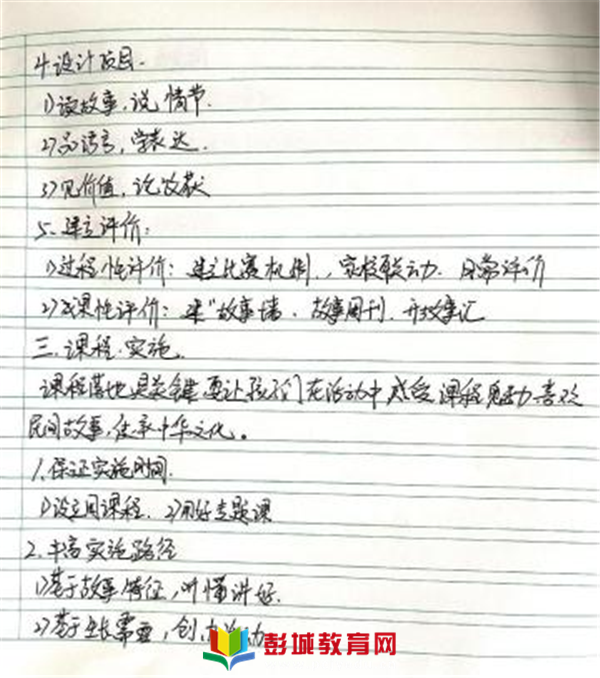 4.设计项目.
1)读故事,说情节.
2)品语言,学表达.
3)见价值,论收获
5.建立评价:
1)过程性评价:建立比赛机制,家校联动.日常评价
2)成果性评价:建"故事墙、故事周刊、开故事汇
三.课程实施.
课程落地是关键,要让孩子们在活动中感受课程魅力喜欢
民间故事,传承中华文化。
1.保证实施时间.
1)设立周课程.2)用好专题课
2.丰富实施路径
1)基于故事特征,听懂讲好.
2)基于生长需要,创办活动
彭城教育网